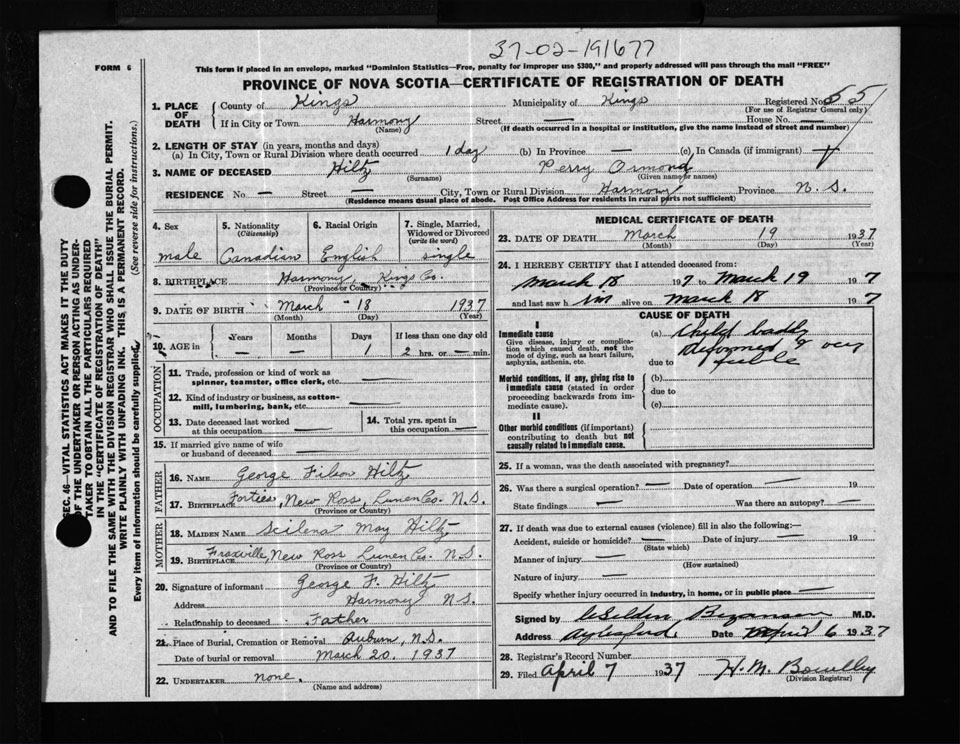 37-02-191677
FORM 6
This form if placed in an envelope, marked "Dominion Statistics—Free, penalty for improper use $300," and properly addressed will pass through the mail "FREE"
PROVINCE OF NOVA SCOTIA—CERTIFICATE OF REGISTRATION OF DEATH
1. PLACE OF DEATH County of Kings Municipality of Kings Registered No. 55
(For use of Registrar General only)
If in City or Town Harmony Street — House No. —
(Name) (If death occurred in a hospital or institution, give the name instead of street and number)
2. LENGTH OF STAY (in years, months and days)
(a) In City, Town or Rural Division where death occurred 1 day (b) In Province — (c) In Canada (if immigrant)
3. NAME OF DECEASED Hiltz Perry Ormond
(Surname) (Given name or names)
RESIDENCE No — Street — City, Town or Rural Division Harmony Province N. S.
(Residence means usual place of abode. Post Office Address for residents in rural parts not sufficient)
4. Sex 5. Nationality (Citizenship) 6. Racial Origin 7. Single, Married, Widowed or Divorced (write the word)
male Canadian English single
8. BIRTHPLACE Harmony, Kings Co.
(Province or Country)
9. DATE OF BIRTH March - 18 1937
(Month) (Day) (Year)
10. AGE in Years Months Days If less than one day old
— — 1 2 hrs. or — min.
OCCUPATION
11. Trade, profession or kind of work as spinner, teamster, office clerk, etc. —
12. Kind of industry or business, as cotton-mill, lumbering, bank, etc. —
13. Date deceased last worked at this occupation — 14. Total yrs. spent in this occupation —
15. If married give name of wife or husband of deceased —
FATHER
16. NAME George Filson Hiltz
17. BIRTHPLACE Forties, New Ross, Lunen Co. N.S.
(Province or Country)
MOTHER
18. MAIDEN NAME Scilena May Hiltz
19. BIRTHPLACE Fraxville, New Ross Lunen Co. N.S.
(Province or Country)
20. Signature of informant George F. Hiltz
Address Harmony N.S.
Relationship to deceased Father
21. Place of Burial, Cremation or Removal Auburn, N.S.
Date of burial or removal March 20. 1937
22. UNDERTAKER none.
(Name and address)
MEDICAL CERTIFICATE OF DEATH
23. DATE OF DEATH March 19 1937
(Month) (Day) (Year)
24. I HEREBY CERTIFY that I attended deceased from:
March 18 1937 to March 19 1937
and last saw him alive on March 18 1937
CAUSE OF DEATH
I
Immediate cause (a) Child badly
Give disease, injury or complication which caused death, not the mode of dying, such as heart failure, asphyxia, asthenia, etc. Deformed & very
due to feeble
Morbid conditions, if any, giving rise to immediate cause (stated in order proceeding backwards from immediate cause). (b)
due to
(c)
II
Other morbid conditions (if important) contributing to death but not causally related to immediate cause.
25. If a woman, was the death associated with pregnancy?
26. Was there a surgical operation? — Date of operation — 19
State findings — Was there an autopsy? —
27. If death was due to external causes (violence) fill in also the following:—
Accident, suicide or homicide? — Date of injury — 19
(State which)
Manner of injury —
(How sustained)
Nature of injury —
Specify whether injury occurred in industry, in home, or in public place —
Signed by Selden Bezanson M.D.
Address Aylesford, Date April 6 1937
28. Registrar's Record Number
29. Filed April 7 1937 H. M.
(Division Registrar)
SEC. 46—C. VITAL STATISTICS ACT MAKES IT THE DUTY
OF THE UNDERTAKER OR PERSON ACTING AS UNDER-
TAKER TO OBTAIN ALL THE PARTICULARS REQUIRED
IN THE "CERTIFICATE OF REGISTRATION OF DEATH"
AND TO FILE THE SAME WITH THE DIVISION REGISTRAR WHO SHALL ISSUE THE BURIAL PERMIT.
WRITE PLAINLY WITH UNFADING INK. THIS IS A PERMANENT RECORD.
Every item of information should be carefully supplied. (See reverse side for instructions.)